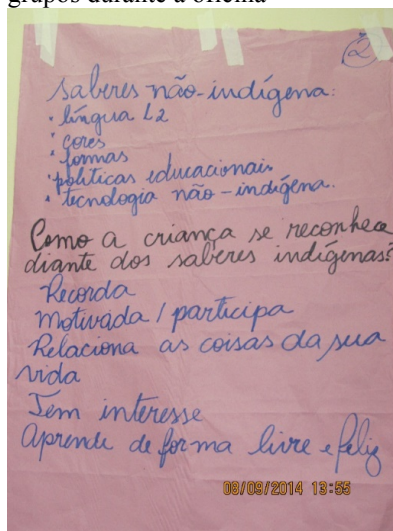 grupos durante a oficina
2
Saberes não-indígena:
• língua L2
• cores
• formas
• políticas educacionais
• tecnologia não-indígena.
Como a criança se reconhece
diante dos saberes indígenas?
Recorda
Motivada / participa
Relaciona as coisas da sua
vida
Tem interesse
Aprende de forma livre e feliz
08/09/2014 13:55